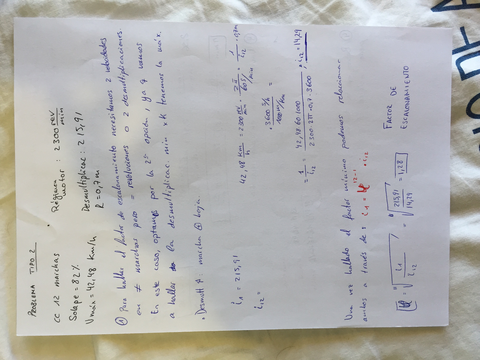 PROBLEMA TIPO 2
CC 12 marchas
Solape = 82%
Vmáx = 42,48 km/h
Régimen motor: 2300 rev/min
Desmultiplicac: 215,91
R = 0,7 m
① Para hallar el factor de escalonamiento necesitamos 2 velocidades
con ≠ marchas pero = revoluciones o 2 desmultiplicaciones
En este caso, optamos por la 2ª opción, ya q vamos
a hallar la desmultiplicac. mín y tenemos la máx.
• Desmult A: marcha ① baja.
i₁ = 215,91
i₁₂ =
42,48 km/h = 2300
3600
1/i₁₂ = 42,48·60·1000 / 2300·2π·0,7·3600 = i₁₂ = 14,29
Una vez hallado el factor mínimo podemos relacionar
ambos a través de:
= √ i₁/i₁₂ = √ 215,91/14,29 = 1,28
FACTOR DE
ESCALONAMIENTO